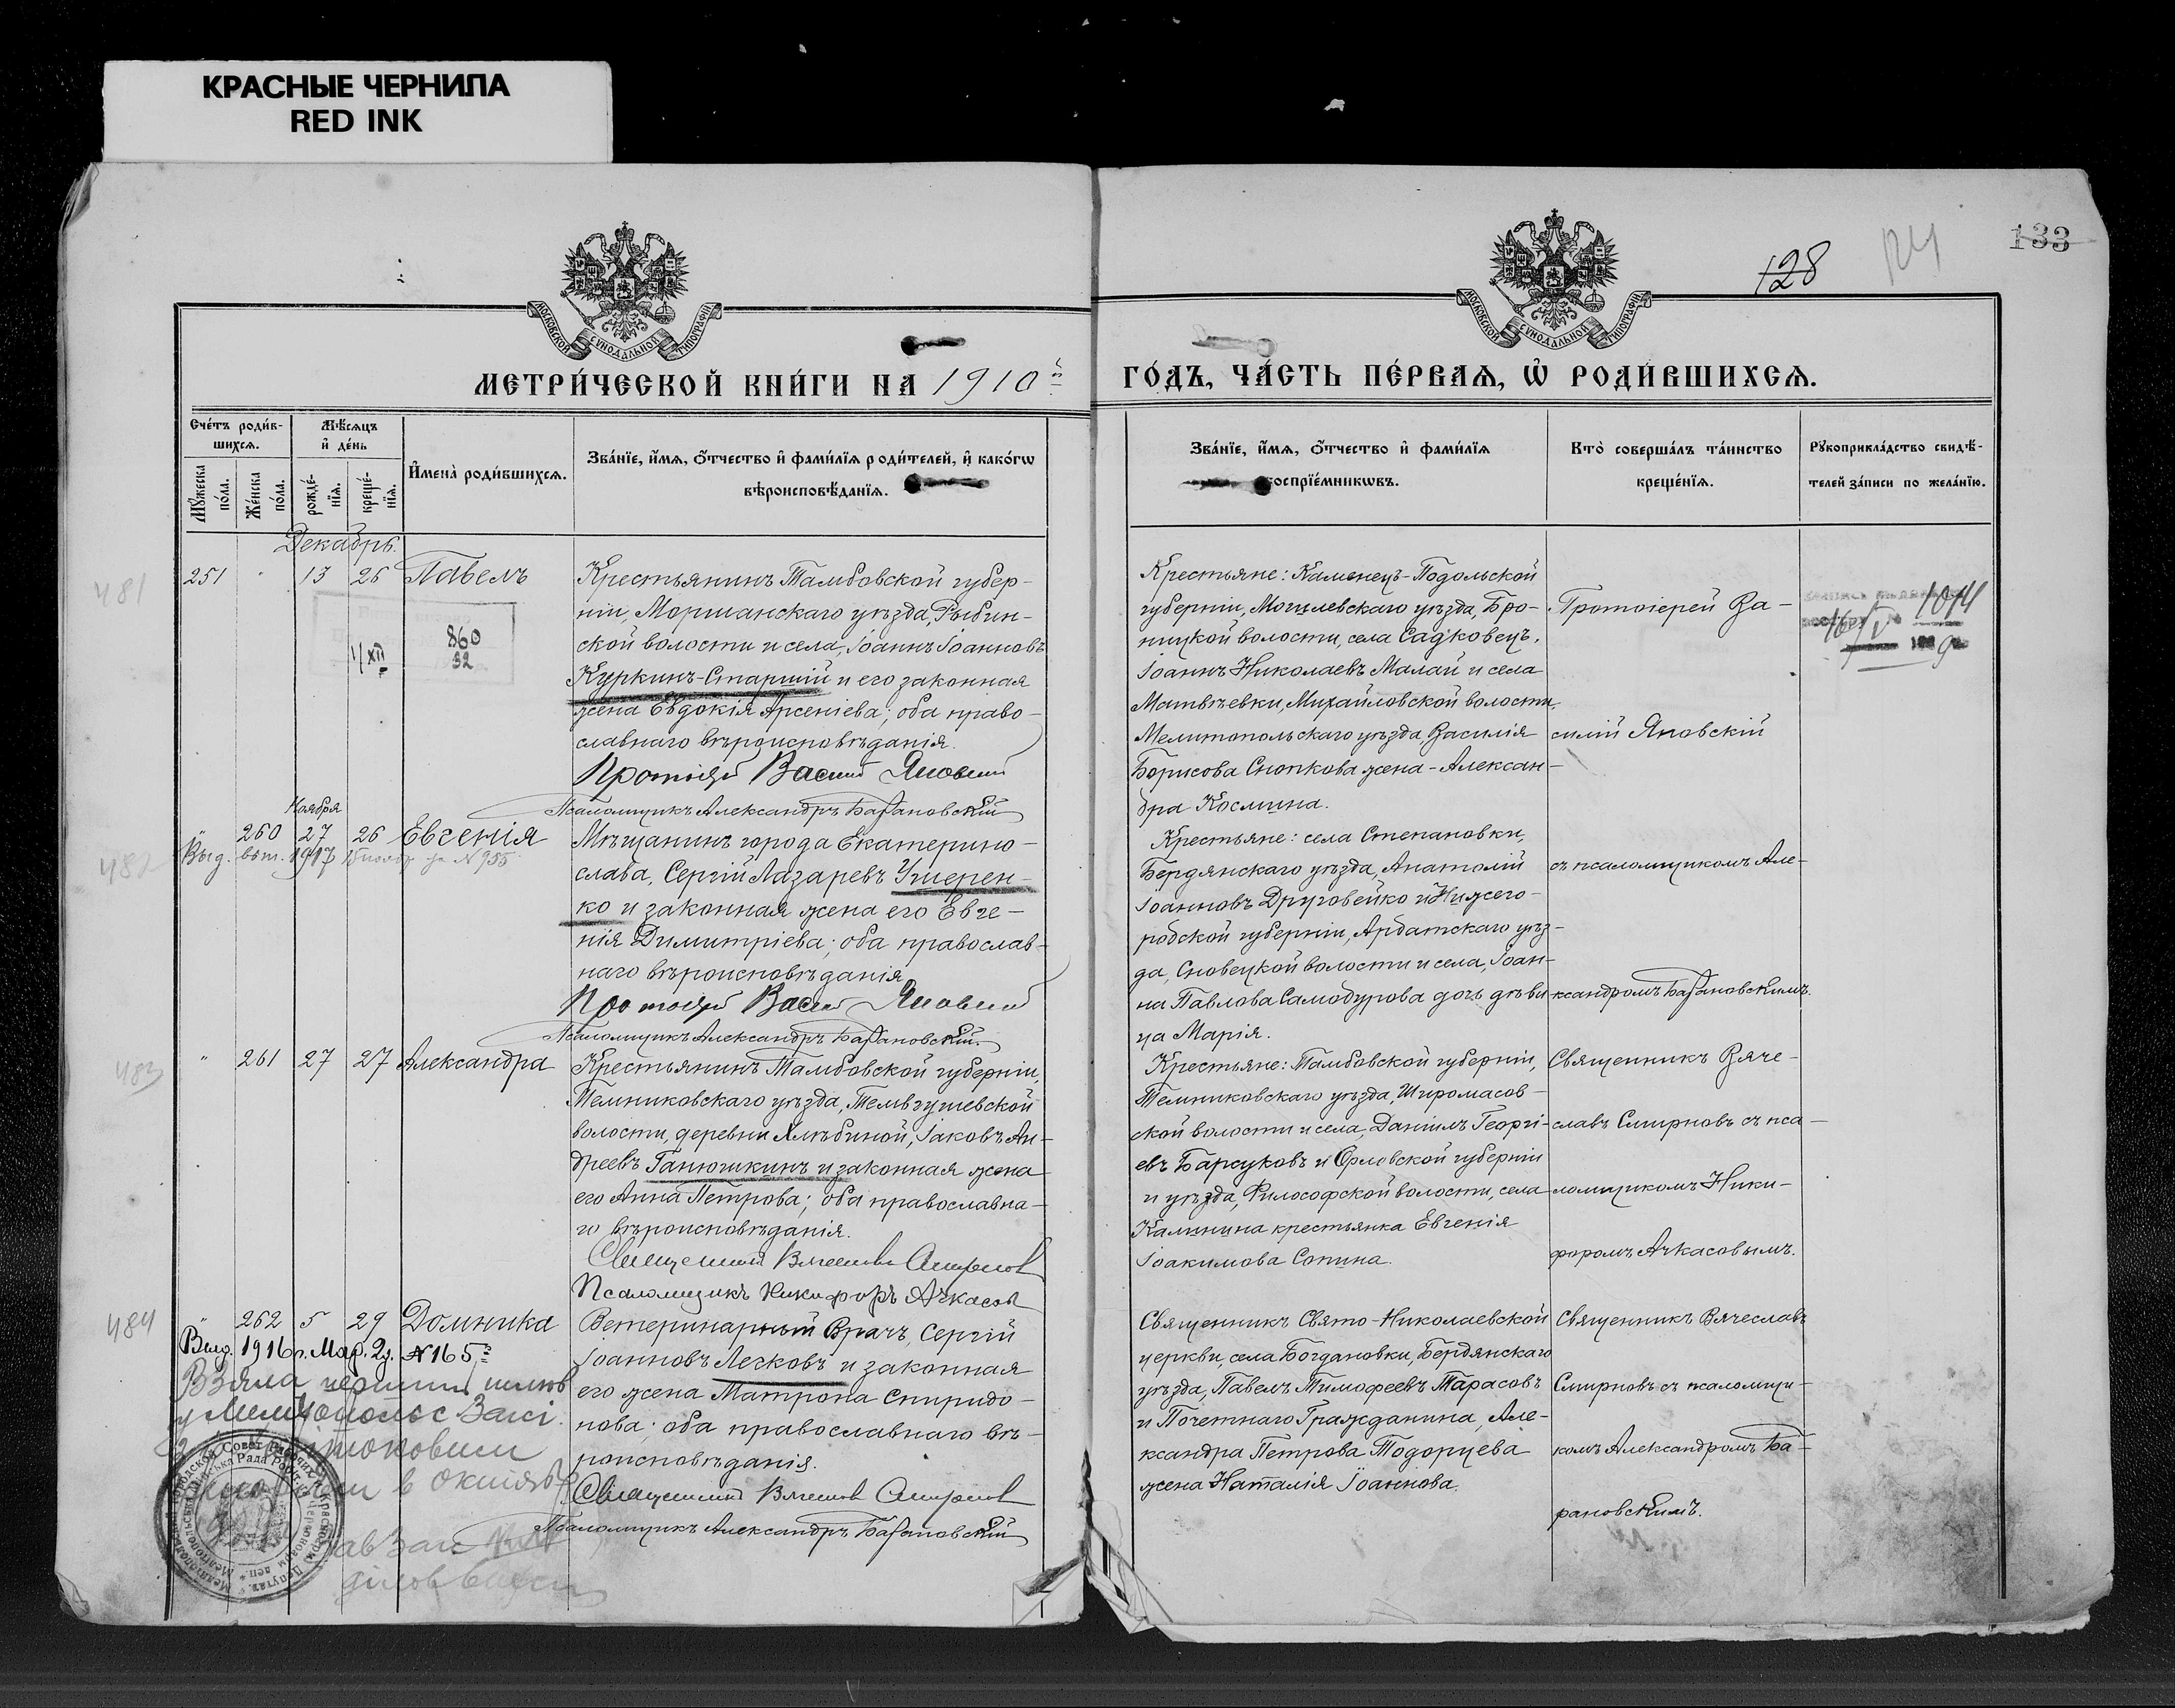 КРАСНЫЕ ЧЕРНИЛА
RED INK
133
128
МОСКОВСКОЙ СУНОДАЛЬНОЙ ТИПОГРАФІИ
МОСКОВСКОЙ СУНОДАЛЬНОЙ ТИПОГРАФІИ
МЕТРИ́ЧЕСКОЙ КНИ́ГИ НА 1910й
ГО́ДЪ, ЧА́СТЬ ПЕ́РВАѦ, Ѡ҆ РОДИ́ВШИХСѦ.
Сче́тъ роди́в-
шихсѧ.
Мꙋ́жеска по́ла.
Же́нска по́ла.
Мѣ́сѧцъ
и҆ де́нь
рожде́-
нїѧ.
креще́-
нїѧ.
И҆мена̀ роди́вшихсѧ.
Зва́нїе, и҆́мѧ, ѻ҆́тчество и҆ фами́лїѧ роди́телей, и҆ како́гѡ
вѣроисповѣ́данїѧ.
Зва́нїе, и҆́мѧ, ѻ҆́тчество и҆ фами́лїѧ
воспрїе́мникѡвъ.
Кто̀ соверша́лъ та́инство
креще́нїѧ.
Рꙋкоприкла́дство свидѣ́-
телей за́писи по жела́нїю.
Декабрь.
481
251
13
26
Павелъ
860
32
1/XII
Крестьянинъ Тамбовской губер-
ніи, Моршанскаго уѣзда, Рыбин-
ской волости и села, Іоаннъ Іоанновъ
Куркинъ-Старшій и его законная
жена Евдокія Арсеніева; оба право-
славнаго вѣроисповѣданія.
Протоіерей Василій Яновскій
Псаломщикъ Александръ Барановскій
Крестьяне: Каменецъ-Подольской
губерніи, Могилевскаго уѣзда, Бро-
ницкой волости, села Садковецъ,
Іоаннъ Николаевъ Малай и села
Матвѣевки, Михайловской волости,
Мелитопольскаго уѣзда, Василія
Борисова Снопкова жена - Алексан-
дра Космина.
Протоіерей Ва-
силій Яновскій
1014
482
Ноября
260
27
26
Евгенія
Выд. 1917 № 955
Мѣщанинъ города Екатерино-
слава, Сергій Лазаревъ Ушерен-
ко и законная жена его Евге-
нія Димитріева; оба православ-
наго вѣроисповѣданія
Протоіерей Василій Яновскій
Псаломщикъ Александръ Барановскій.
Крестьяне: села Степановки,
Бердянскаго уѣзда, Анатолій
Іоанновъ Друговейко и Нижего-
родской губерніи, Ардатскаго уѣз-
да, Сновецкой волости и села, Іоан-
на Павлова Самодурова дочь дѣви-
ца Марія.
съ псаломщикомъ Але-
ксандромъ Барановскимъ.
483
"
261
27
27
Александра
Крестьянинъ Тамбовской губерніи,
Темниковскаго уѣзда,
волости, деревни Іаковъ Ан-
дреевъ Ганюшкинъ и законная жена
его Анна Петрова; оба православна-
го вѣроисповѣданія.
Священникъ Вячеславъ Смирновъ
Псаломщикъ Никифоръ Ачкасовъ
Крестьяне: Тамбовской губерніи,
Темниковскаго уѣзда, Широмасов-
ской волости и села, Даніилъ Георгі-
евъ Барсуковъ и Орловской губерніи
и уѣзда, Философской волости, села
Калинина крестьянка Евгенія
Іоакимова Сопина.
Священникъ Вяче-
славъ Смирновъ съ пса-
ломщикомъ Ники-
форомъ Ачкасовымъ.
484
"
262
5
29
Домника
Выд. 1916 г. Мар. 2 д. № 165
Ветеринарный Врачъ, Сергій
Іоанновъ Легковъ и законная
его жена Матрона Спиридо-
нова; оба православнаго вѣ-
роисповѣданія.
Священникъ Вячеславъ Смирновъ
Псаломщикъ Александръ Барановскій
Священникъ Свято-Николаевской
церкви, села Богдановки, Бердянскаго
уѣзда, Павелъ Тимофеевъ Тарасовъ
и Почетнаго Гражданина, Але-
ксандра Петрова Тодорцева
жена Наталія Іоаннова.
Священникъ Вячеславъ
Смирновъ съ псаломщи-
комъ Александромъ Ба-
рановскимъ.